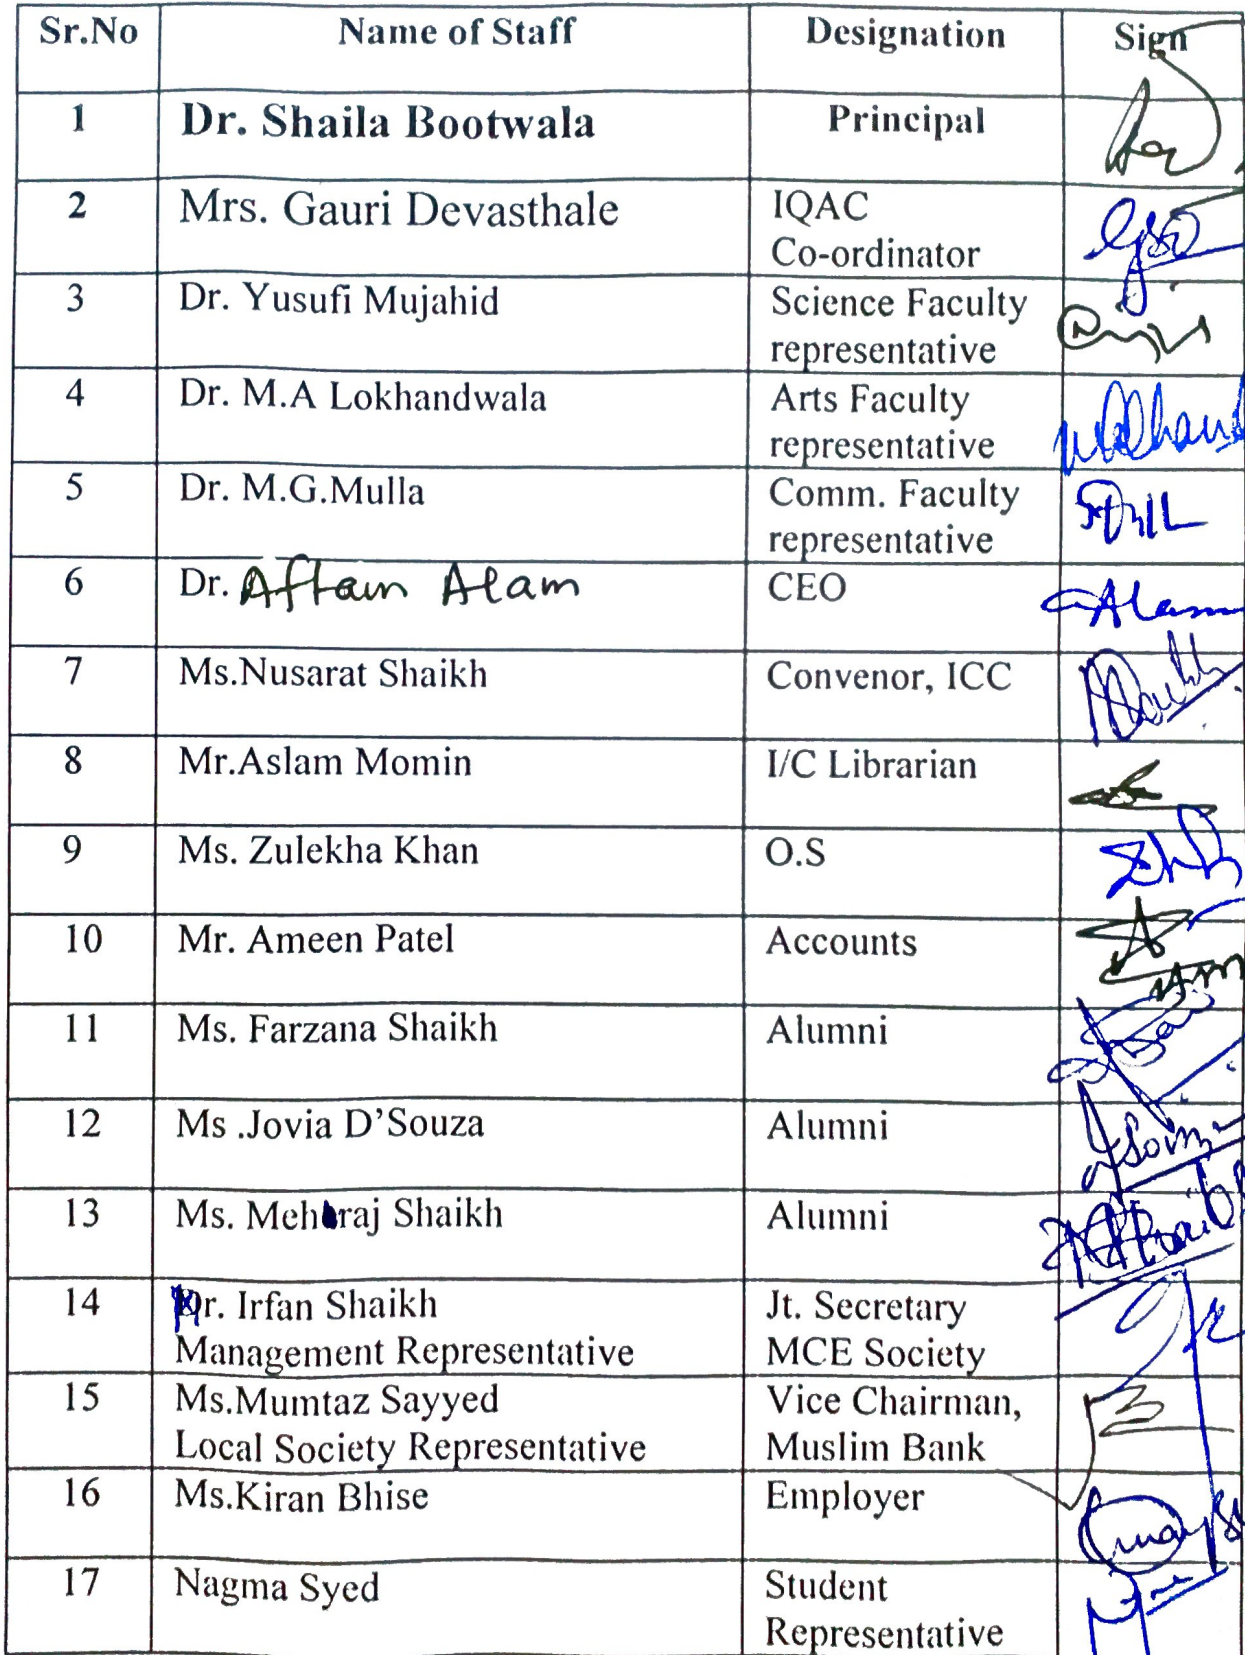 Sr.No Name of Staff Designation Sign
1 Dr. Shaila Bootwala Principal
2 Mrs. Gauri Devasthale IQAC
Co-ordinator
3 Dr. Yusufi Mujahid Science Faculty
representative
4 Dr. M.A Lokhandwala Arts Faculty
representative
5 Dr. M.G.Mulla Comm. Faculty
representative
6 Dr. Aftam Alam CEO
Alam
7 Ms.Nusarat Shaikh Convenor, ICC
8 Mr.Aslam Momin I/C Librarian
9 Ms. Zulekha Khan O.S
10 Mr. Ameen Patel Accounts
11 Ms. Farzana Shaikh Alumni
12 Ms .Jovia D'Souza Alumni
13 Ms. Mehraj Shaikh Alumni
14 Irfan Shaikh Jt. Secretary
Management Representative MCE Society
15 Ms.Mumtaz Sayyed Vice Chairman,
Local Society Representative Muslim Bank
16 Ms.Kiran Bhise Employer
17 Nagma Syed Student
Representative